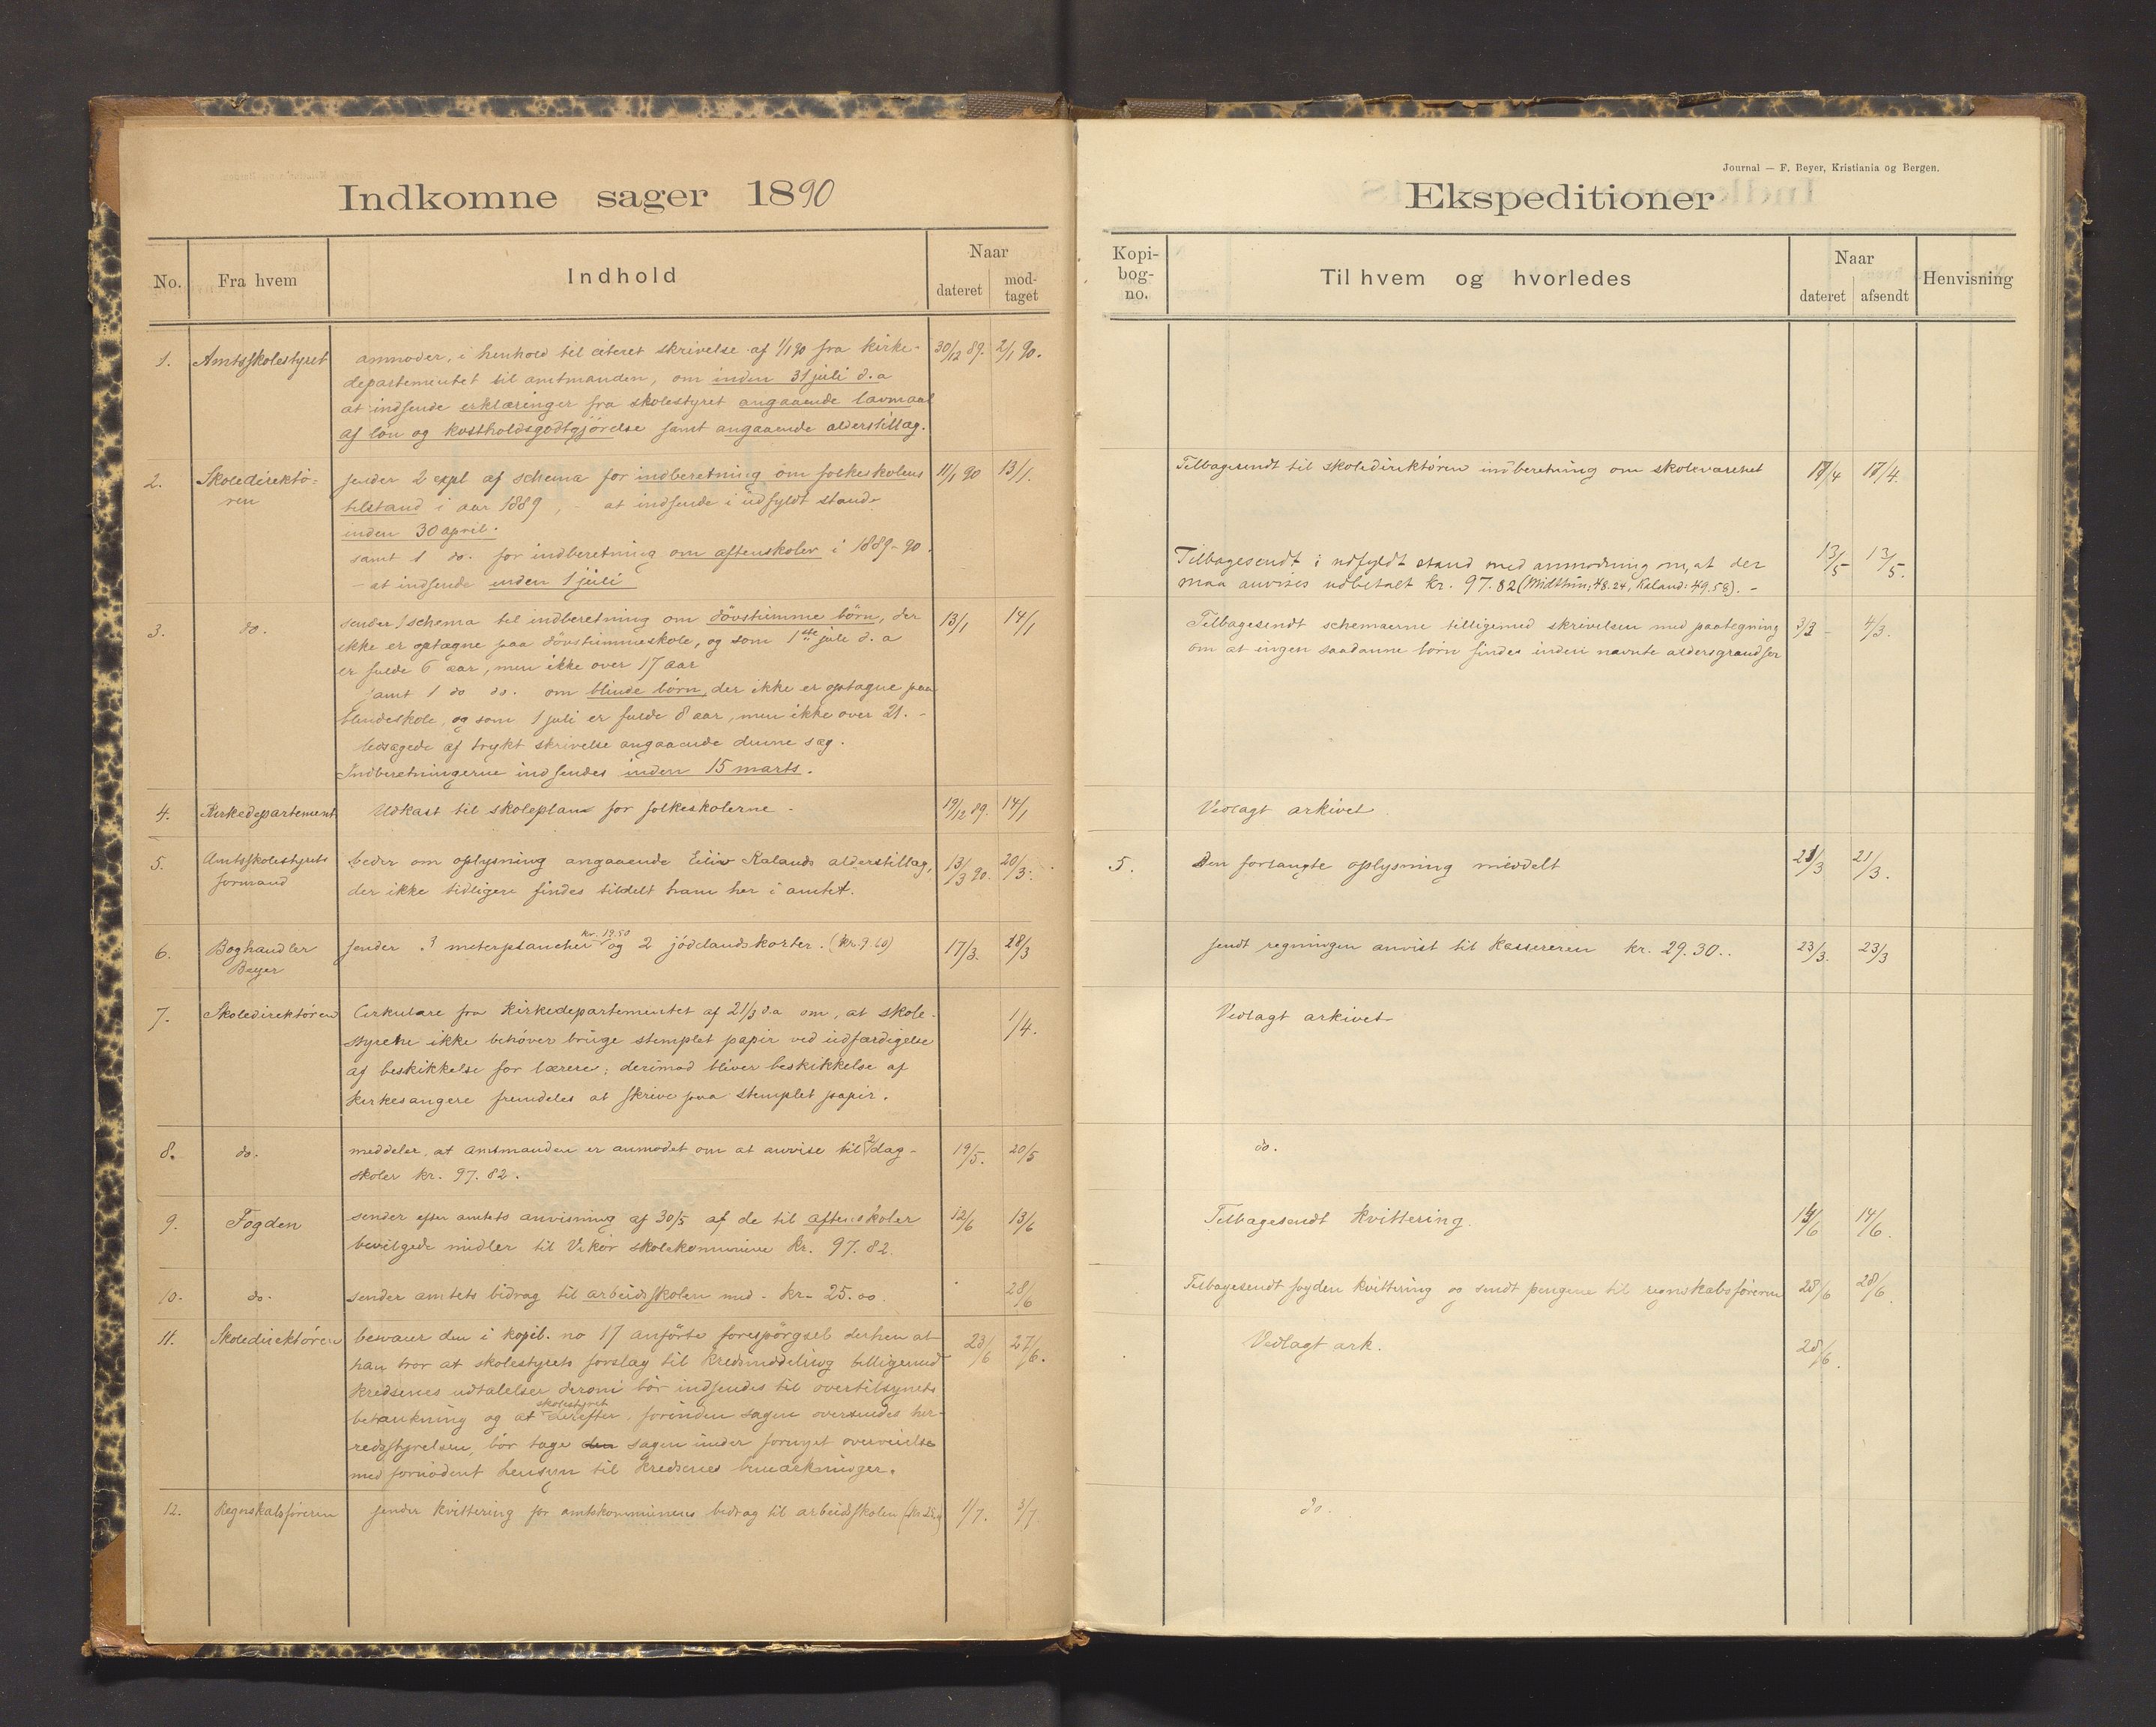 Indkomne sager 1890
No.
Fra hvem
Indhold
Naar
dateret
mod-
taget
1.
Amtsskolestyret
anmoder, i henhold til citeret skrivelse af 1/1 90 fra kirke-
departementet til amtmanden, om inden 31 juli d.a
at indsende erklæringer fra skolestyret angaaende lavmaal
af løn og kostholdsgodtgjørelse samt angaaende alderstillæg.
30/12 89.
2/1 90.
2.
Skoledirektø-
ren
sender 2 expl af schema for indberetning om folkeskolens
tilstand i aar 1889, - at indsende i udfyldt stand
inden 30 april.
samt 1 do. for indberetning om aftenskoler i 1889-90.
- at indsende inden 1 juli
11/1 90
13/1.
3.
do.
sender 1 schema til indberetning om døvstumme børn, der
ikke er optagne paa døvstummeskole, og som 1ste juli d.a
er fulde 6 aar, men ikke over 17 aar
samt 1 do do. om blinde børn, der ikke er optagne paa
blindeskole, og som 1 juli er fulde 8 aar, men ikke over 21. -
ledsagede af trykt skrivelse angaaende denne sag.
Indberetningerne indsendes inden 15 marts.
13/1
14/1
4.
Kirkedepartement
Udkast til skoleplan for folkeskolerne.
19/12 89.
14/1
5.
Amtsskolestyrets
formand
beder om oplysning angaaende Eiliv Kalands alderstillæg,
der ikke tidligere findes tildelt ham her i amtet.
13/3 90.
20/3.
6.
Boghandler
Beyer
sender 3 meterplancher kr. 19.50 og 2 jødelandskarter. (kr. 9.60)
17/3.
18/3
7.
Skoledirektøren
Cirkulære fra Kirkedepartementet af 21/3 d.a om, at skole-
styrerne ikke behøver bruge stemplet papir ved udfærdigelse
af beskikkelse for lærere; derimod bliver beskikkelse af
kirkesangere fremdeles at skrive paa stemplet papir.
1/4.
8.
do.
meddeler, at amtmanden er anmodet om at anvise til dag-
skoler kr. 97.82.
19/5.
20/5
9.
Fogden
sender efter amtets anvisning af 30/5 af de til aftenskoler
bevilgede midler til Vikør skolekommune kr. 97.82
12/6
13/6
10.
do.
sender amtets bidrag til arbeidsskolen med - kr. 25.00.
28/6
11.
Skoledirektøren
besvarer den i kopib. no 17 anførte forespørgsel derhen at
han tror at skolestyrets forslag til kredsinddeling tilligemed
kredsenes udtalelser derom bør indsendes til overtilsynets
betænkning og at skolestyret derefter, forinden sagen oversendes her-
redsstyrelsen, bør tage den sagen under fornyet overveielse
med fornødent hensyn til kredsenes bemærkninger.
23/6
27/6.
12.
Regnskabsføreren
sender kvittering for amtskommunens bidrag til arbeidsskolen (kr 25.)
1/7.
3/7
Journal — F. Beyer, Kristiania og Bergen.
Ekspeditioner
Kopi-
bog-
no.
Til hvem og hvorledes
Naar
dateret
afsendt
Henvisning
Tilbagesendt til skoledirektøren indberetning om skolevæsenet
17/4
17/4.
Tilbagesendt i udfyldt stand med anmodning om, at der
maa anvises udbetalt kr. 97.82 (Midthun: 48.24, Kaland: 49.58). -
13/5
13/5.
Tilbagesendt schemaerne tilligemed skrivelsen med paategning
om at ingen saadanne børn findes inden nævnte aldersgrændser
3/3 -
4/3.
Vedlagt arkivet.
5.
Den forlangte oplysning meddelt
21/3
21/3.
sendt regningen anvist til kassereren kr. 29.30..
23/3.
23/3
Vedlagt arkivet
do.
Tilbagesendt kvittering.
14/6
14/6.
Tilbagesendt fogden kvittering og sendt pengene til regnskabsføreren
28/6
28/6.
Vedlagt ark.
28/6.
do.